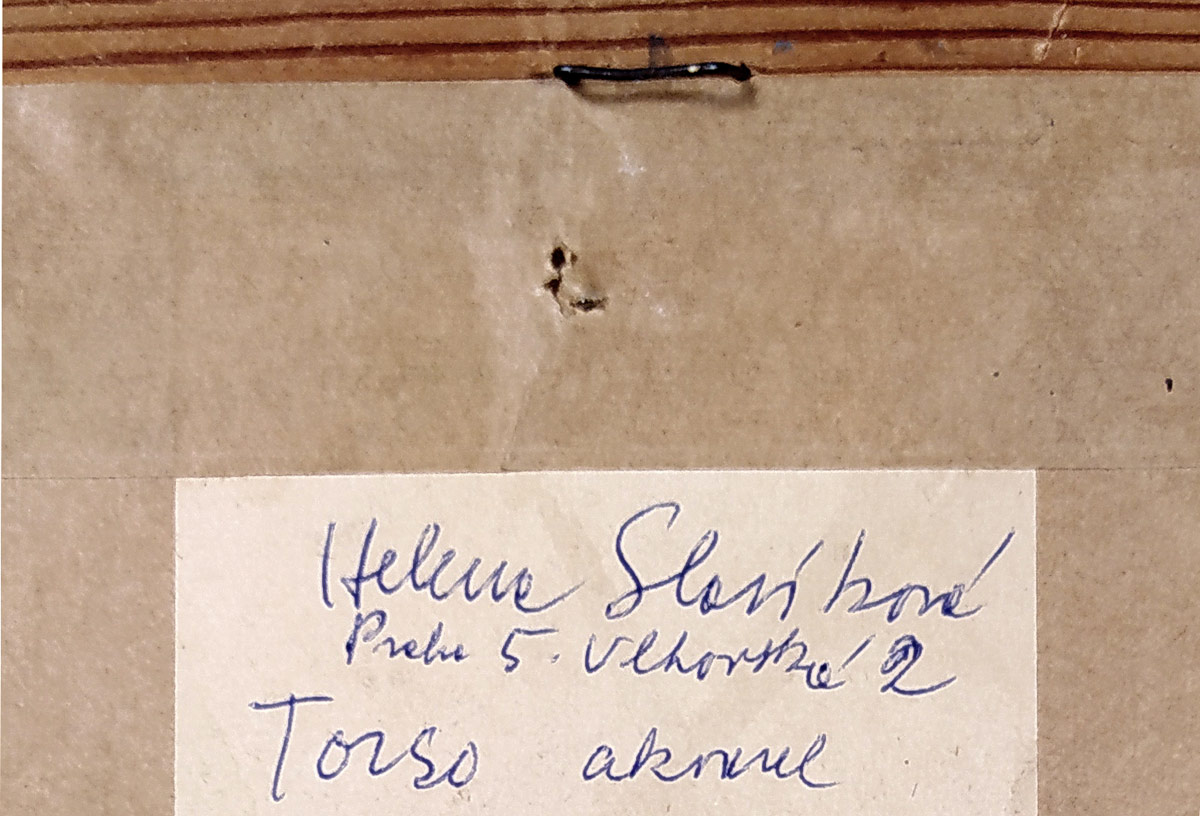 Helena Slavíková
Praha 5. Vltavská 2
Torso akvarel